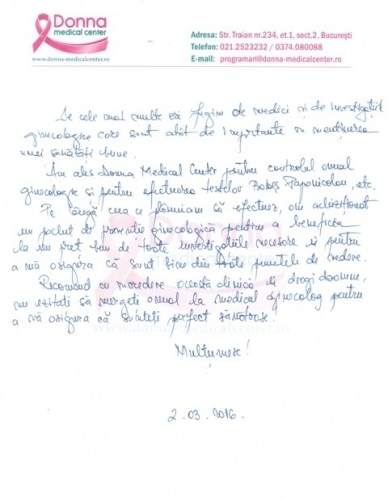 Donna
medical center
www.donna-medicalcenter.ro
Adresa: Str. Traian nr.234, et.1, sect.2, București
Telefon: 021.2523232 / 0374.080088
E-mail: programari@donna-medicalcenter.ro
De cele mai multe ori fugim de medici și de investigațiile
ginecologice care sunt atât de importante în menținerea
unei sănătăți bune.
Am ales Donna Medical Center pentru controlul anual
ginecologic și pentru efectuarea testelor Babeș Papanicolau, etc.
Pe lângă ceea ce plănuiam să efectuez, am achiziționat
un pachet de prevenție ginecologică pentru a beneficia
la un preț bun de toate investigațiile necesare și pentru
a mă asigura că sunt bine din toate punctele de vedere.
Recomand cu încredere această clinică și, dragi doamne,
nu ezitați să mergeți anual la medicul ginecolog pentru
a vă asigura că sunteți perfect sănătoase!
www.donna-medicalcenter.ro
Mulțumesc!
2.03.2016.